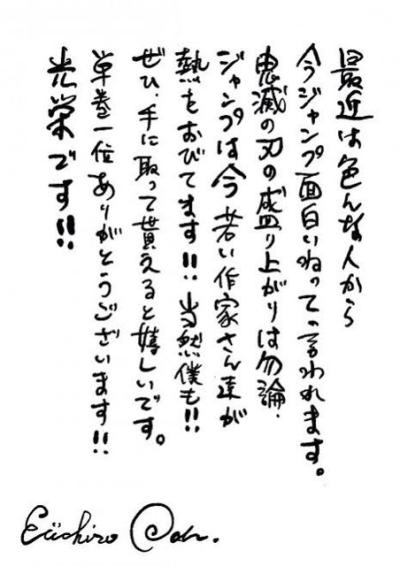 最近は色んな人から
今ジャンプ面白いねって言われます。
鬼滅の刃の盛り上がりは勿論、
ジャンプは今若い作家さん達が
熱をおびてます!!当然僕も!!
ぜひ、手に取って貰えると嬉しいです。
単巻一位ありがとうございます!!
光栄です!!
Eiichiro Oda.